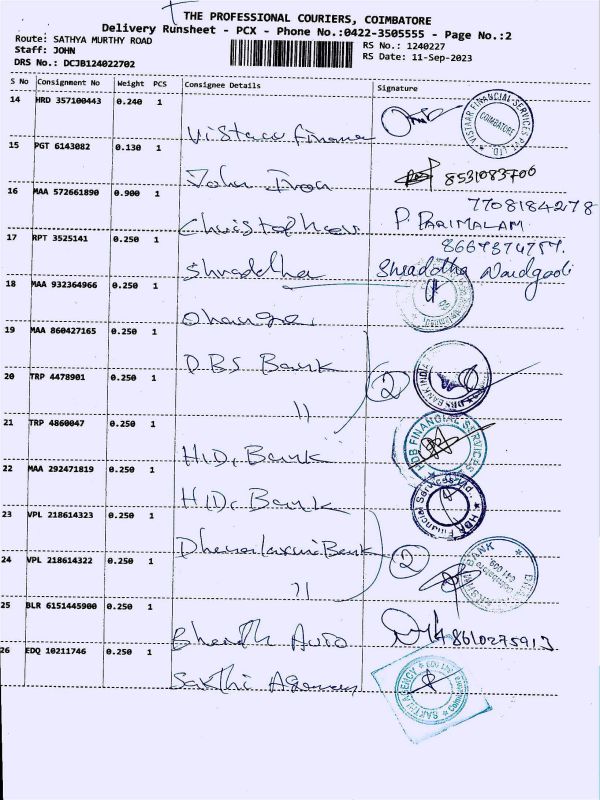 THE PROFESSIONAL COURIERS, COIMBATORE
Delivery Runsheet - PCX - Phone No.:0422-3505555 - Page No.:2
Route: SATHYA MURTHY ROAD RS No.: 1240227
Staff: JOHN RS Date: 11-Sep-2023
DRS No.: DCJB124022702
S No Consignment No Weight PCS Consignee Details Signature
14 HRD 357100443 0.240 1
Vistaar Finance VISTAAR FINANCIAL SERVICES PVT. LTD. COIMBATORE
15 PGT 6143082 0.130 1
John 8531083706
16 MAA 572661890 0.900 1 7708184278
Christopher P. PARIMALAM
17 RPT 3525141 0.250 1
Shraddha Shraddha
18 MAA 932364966 0.250 1
19 MAA 860427165 0.250 1
DBS Bank 2 DBS BANK INDIA
20 TRP 4478901 0.250 1
"
21 TRP 4860047 0.250 1 HDB FINANCIAL SERVICES
Bank
22 MAA 292471819 0.250 1
Bank Financial Services
23 VPL 218614323 0.250 1
Bank 2 BANK
24 VPL 218614322 0.250 1
"
25 BLR 6151445900 0.250 1
Bharath Auto
26 EDQ 10211746 0.250 1
Sakthi Agency SAKTHI AGENCY